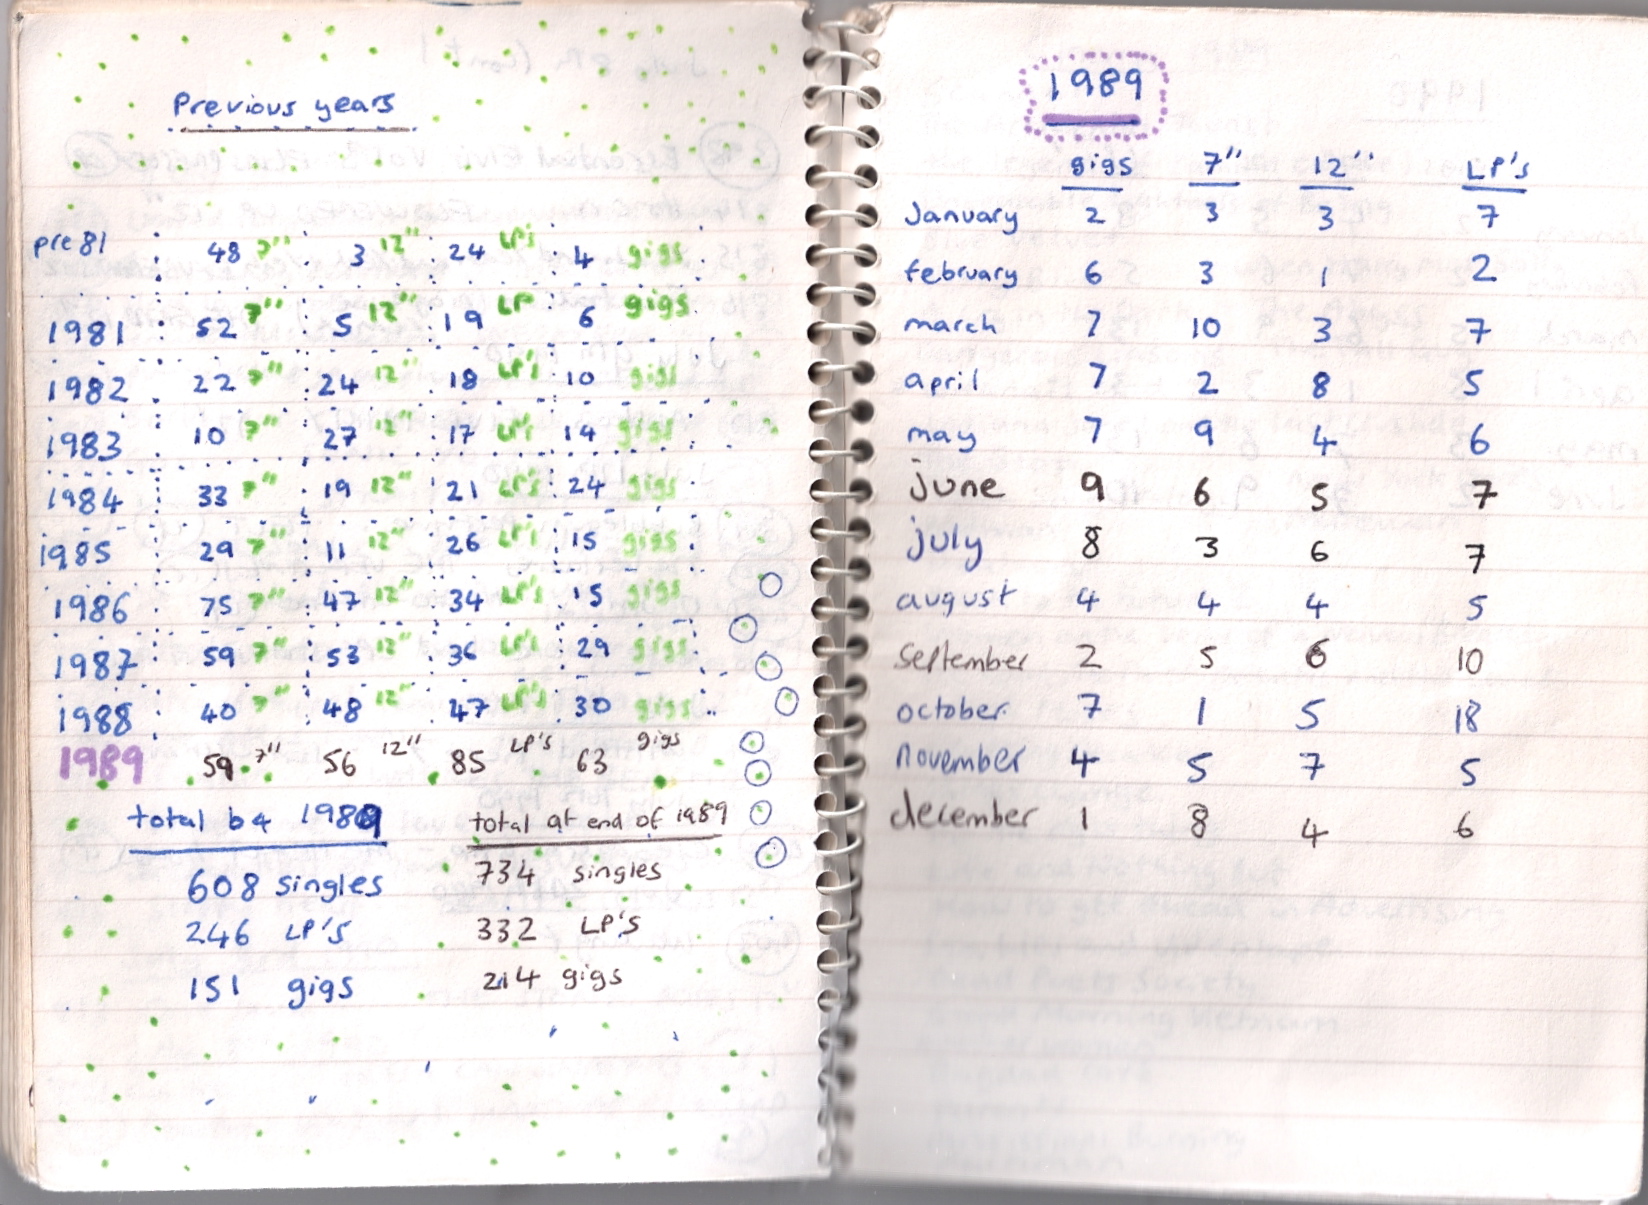 Previous years
pre 81 48 7" 3 12" 24 LP's 4 gigs
1981 52 7" 5 12" 19 LP 6 gigs
1982 22 7" 24 12" 18 LP's 10 gigs
1983 10 7" 27 12" 17 LP's 14 gigs
1984 33 7" 19 12" 21 LP's 24 gigs
1985 29 7" 11 12" 26 LP's 15 gigs
1986 75 7" 47 12" 34 LP's 15 gigs
1987 59 7" 53 12" 36 LP's 29 gigs
1988 40 7" 48 12" 47 LP's 30 gigs
1989 59 7" 56 12" 85 LP's 63 gigs
total b4 1989
608 singles
246 LP's
151 gigs
total at end of 1989
734 singles
332 LP's
214 gigs
1989
gigs 7" 12" LP's
January 2 3 3 7
february 6 3 1 2
march 7 10 3 7
april 7 2 8 5
may 7 9 4 6
june 9 6 5 7
july 8 3 6 7
august 4 4 4 5
September 2 5 6 10
october 7 1 5 18
november 4 5 7 5
december 1 8 4 6